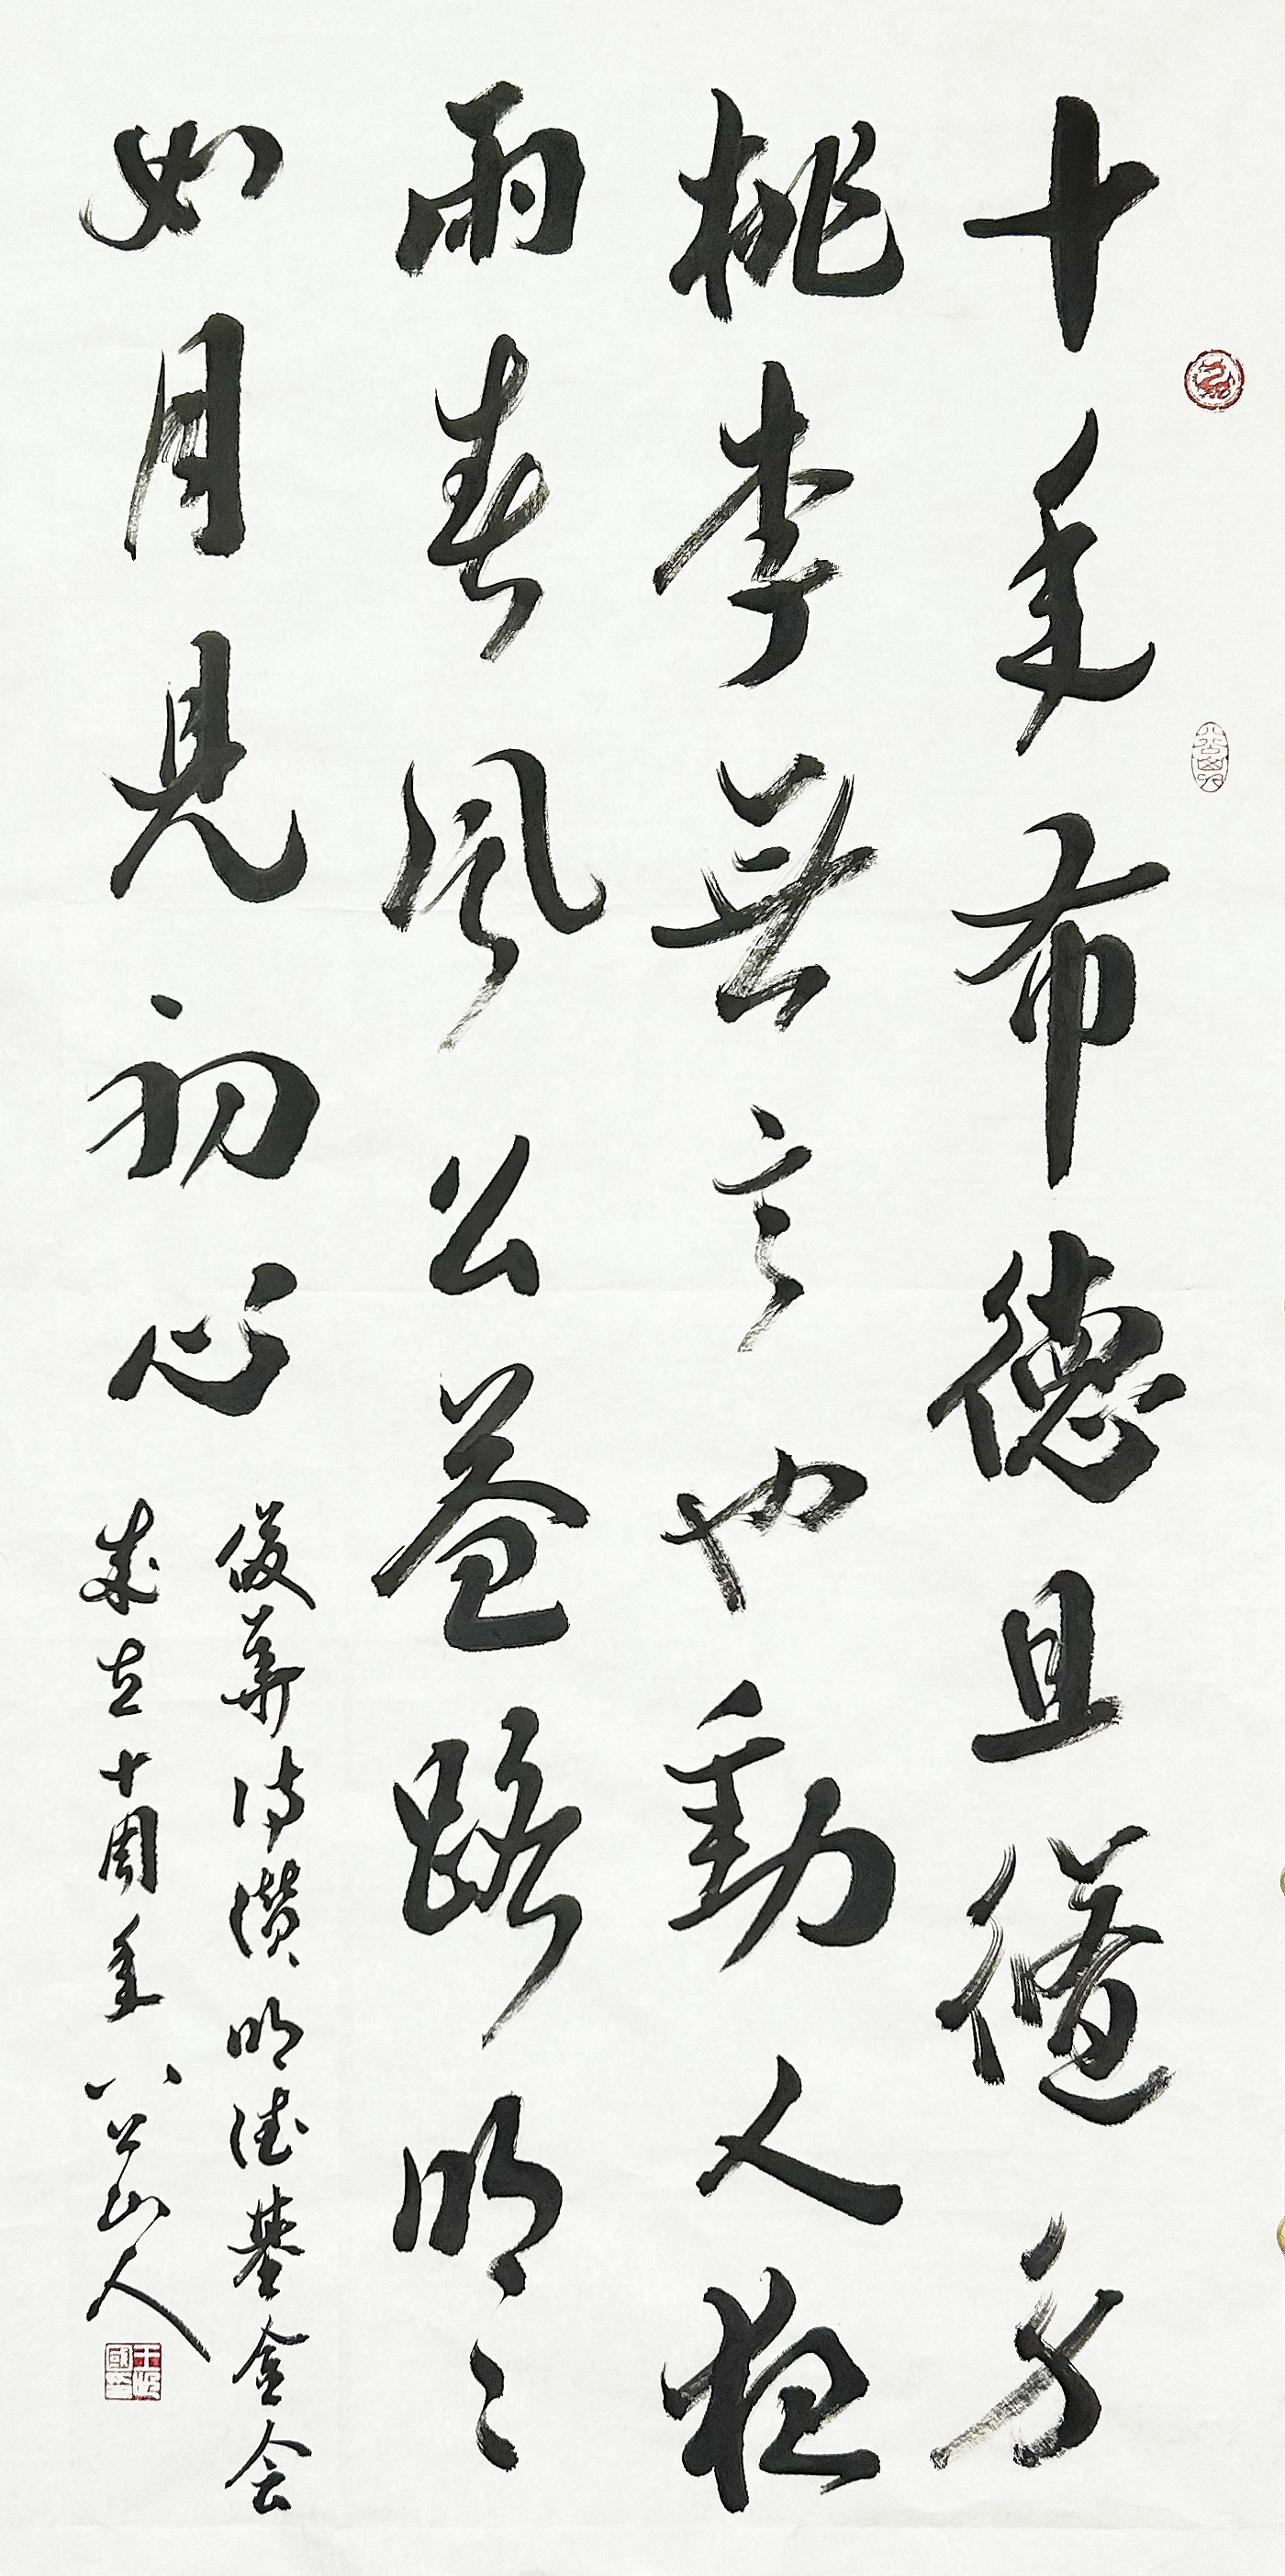 十年布德且身
桃李無言也動人
雨春風公益路明〻
如月見初心
俊華詩讚明德基金会
成立十周年 八公山人